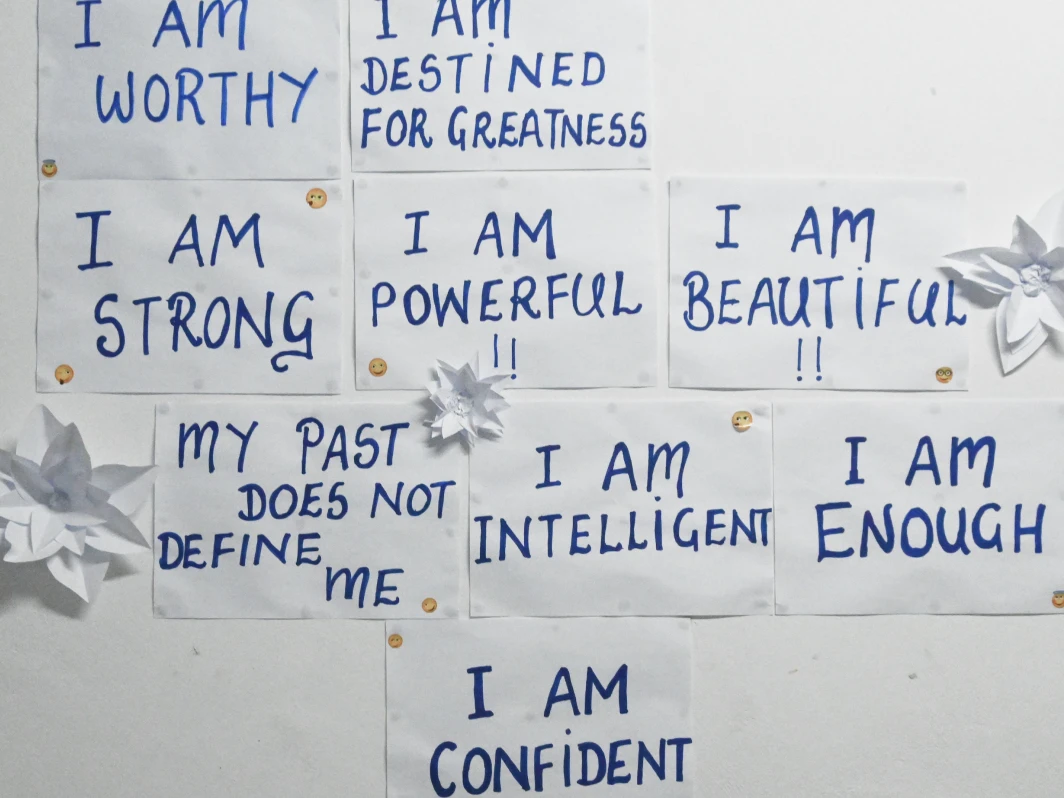 I AM
WORTHY
I AM
DESTINED
FOR GREATNESS
I AM
STRONG
I AM
POWERFUL
!!
I AM
BEAUTIFUL
!!
MY PAST
DOES NOT
DEFINE
ME
I AM
INTELLIGENT
I AM
ENOUGH
I AM
CONFIDENT